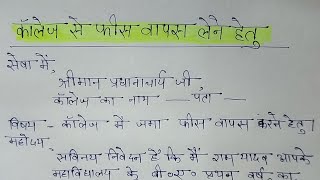 कॉलेज से फीस वापस लेने हेतु
सेवा में,
श्रीमान प्रधानाचार्य जी
कॉलेज का नाम —— पता —
विषय - कॉलेज में जमा फीस वापस करने हेतु।
महोदय
सविनय निवेदन है कि मैं राम यादव आपके
महाविद्यालय के बी०ए० प्रथम वर्ष का